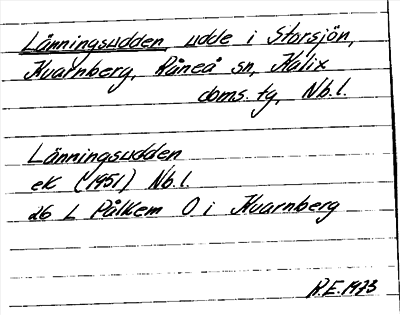 Länningsudden, udde i Storsjön,
Kvarnberg, Råneå sn, Kalix
doms. tg, Nb.l.
Länningsudden
ek (1951) Nb.l.
26 L Pålkem O i Kvarnberg
R.E. 1973